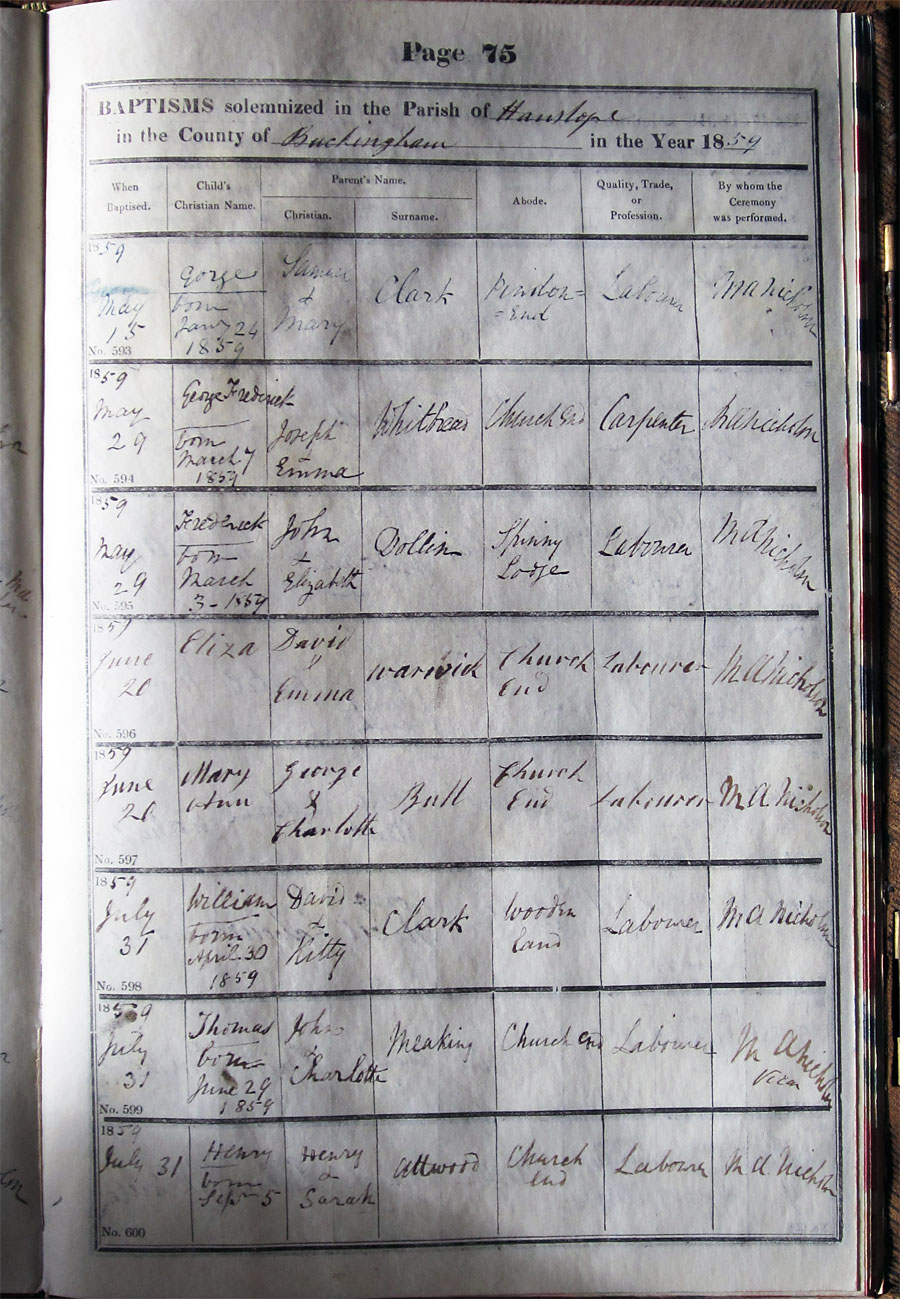 Page 75
BAPTISMS solemnized in the Parish of Hanslope
in the County of Buckingham in the Year 1859
When Baptised.
Child's Christian Name.
Parent's Name.
Christian.
Surname.
Abode.
Quality, Trade, or Profession.
By whom the Ceremony was performed.
1859
May
15
No. 593
Gorge
born
Jany 24
1859
&
Mary
Clark
Pindon=
=End
Labourer
M A Nicholson
1859
May
29
No. 594
George Frederick
born
March 7
1859
Joseph
&
Emma
Whitbread
Church End
Carpenter
M A Nicholson
1859
May
29
No. 595
Frederick
born
March
3 - 1859
John
&
Elizabeth
Dollin
Spinny
Lodge
Labourer
M A Nicholson
1859
June
20
No. 596
Eliza
David
&
Emma
Warwick
Church
End
Labourer
M A Nicholson
1859
June
20
No. 597
Mary
Ann
George
&
Charlotte
Bull
Church
End
Labourer
M A Nicholson
1859
July
31
No. 598
William
born
April 30
1859
David
&
Kitty
Clark
Labourer
M A Nicholson
1859
July
31
No. 599
Thomas
born
June 29
1859
John
&
Charlotte
Meaking
Church end
Labourer
M A Nicholson
Vicar
1859
July 31
No. 600
Henry
born
Sepr 5
Henry
&
Sarah
Attwood
Church
end
Labourer
M A Nicholson